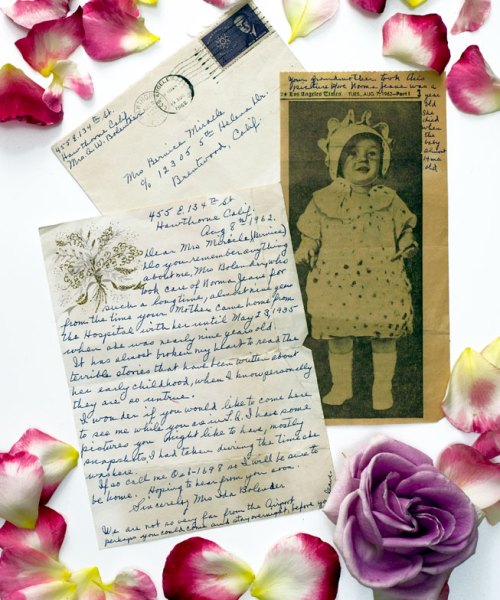 455 E. 134th St.
Hawthorne Calif.
Mrs. A.W. Bolender
LOS ANGELES
1962
Mrs Bernice Miracle
c/o 12305 5th Helena Dr.
Brentwood, Calif.
your grandmother took this
picture of Norma Jeane
Los Angeles Times TUES., AUG. 7, 1962—Part I 3
year
old
She
died
when
the
baby
almost
old
455 E. 134th St
Hawthorne Calif.
Aug 8th 1962.
Dear Mrs Miracle, (Bernice)
Do you remember anything
about me, Mrs Bolender, who
took care of Norma Jeane for
such a long time, almost nine years
from the time your Mother came home from
the Hospital with her until May 23, 1935
when she was nearly nine years old.
It has almost broken my heart to read the
terrible stories that have been written about
her early childhood, when I know personally
they are so untrue.
I wonder if you would like to come here
to see me while you are in L.A. I have some
pictures you might like to have, mostly
snapshots I had taken during the time she
was here.
If so call me Os 6-1698 so I will be sure to
be home. Hoping to hear from you soon.
Sincerely Mrs Ida Bolender
We are not so very far from the Airport
perhaps you could come and stay overnight before you